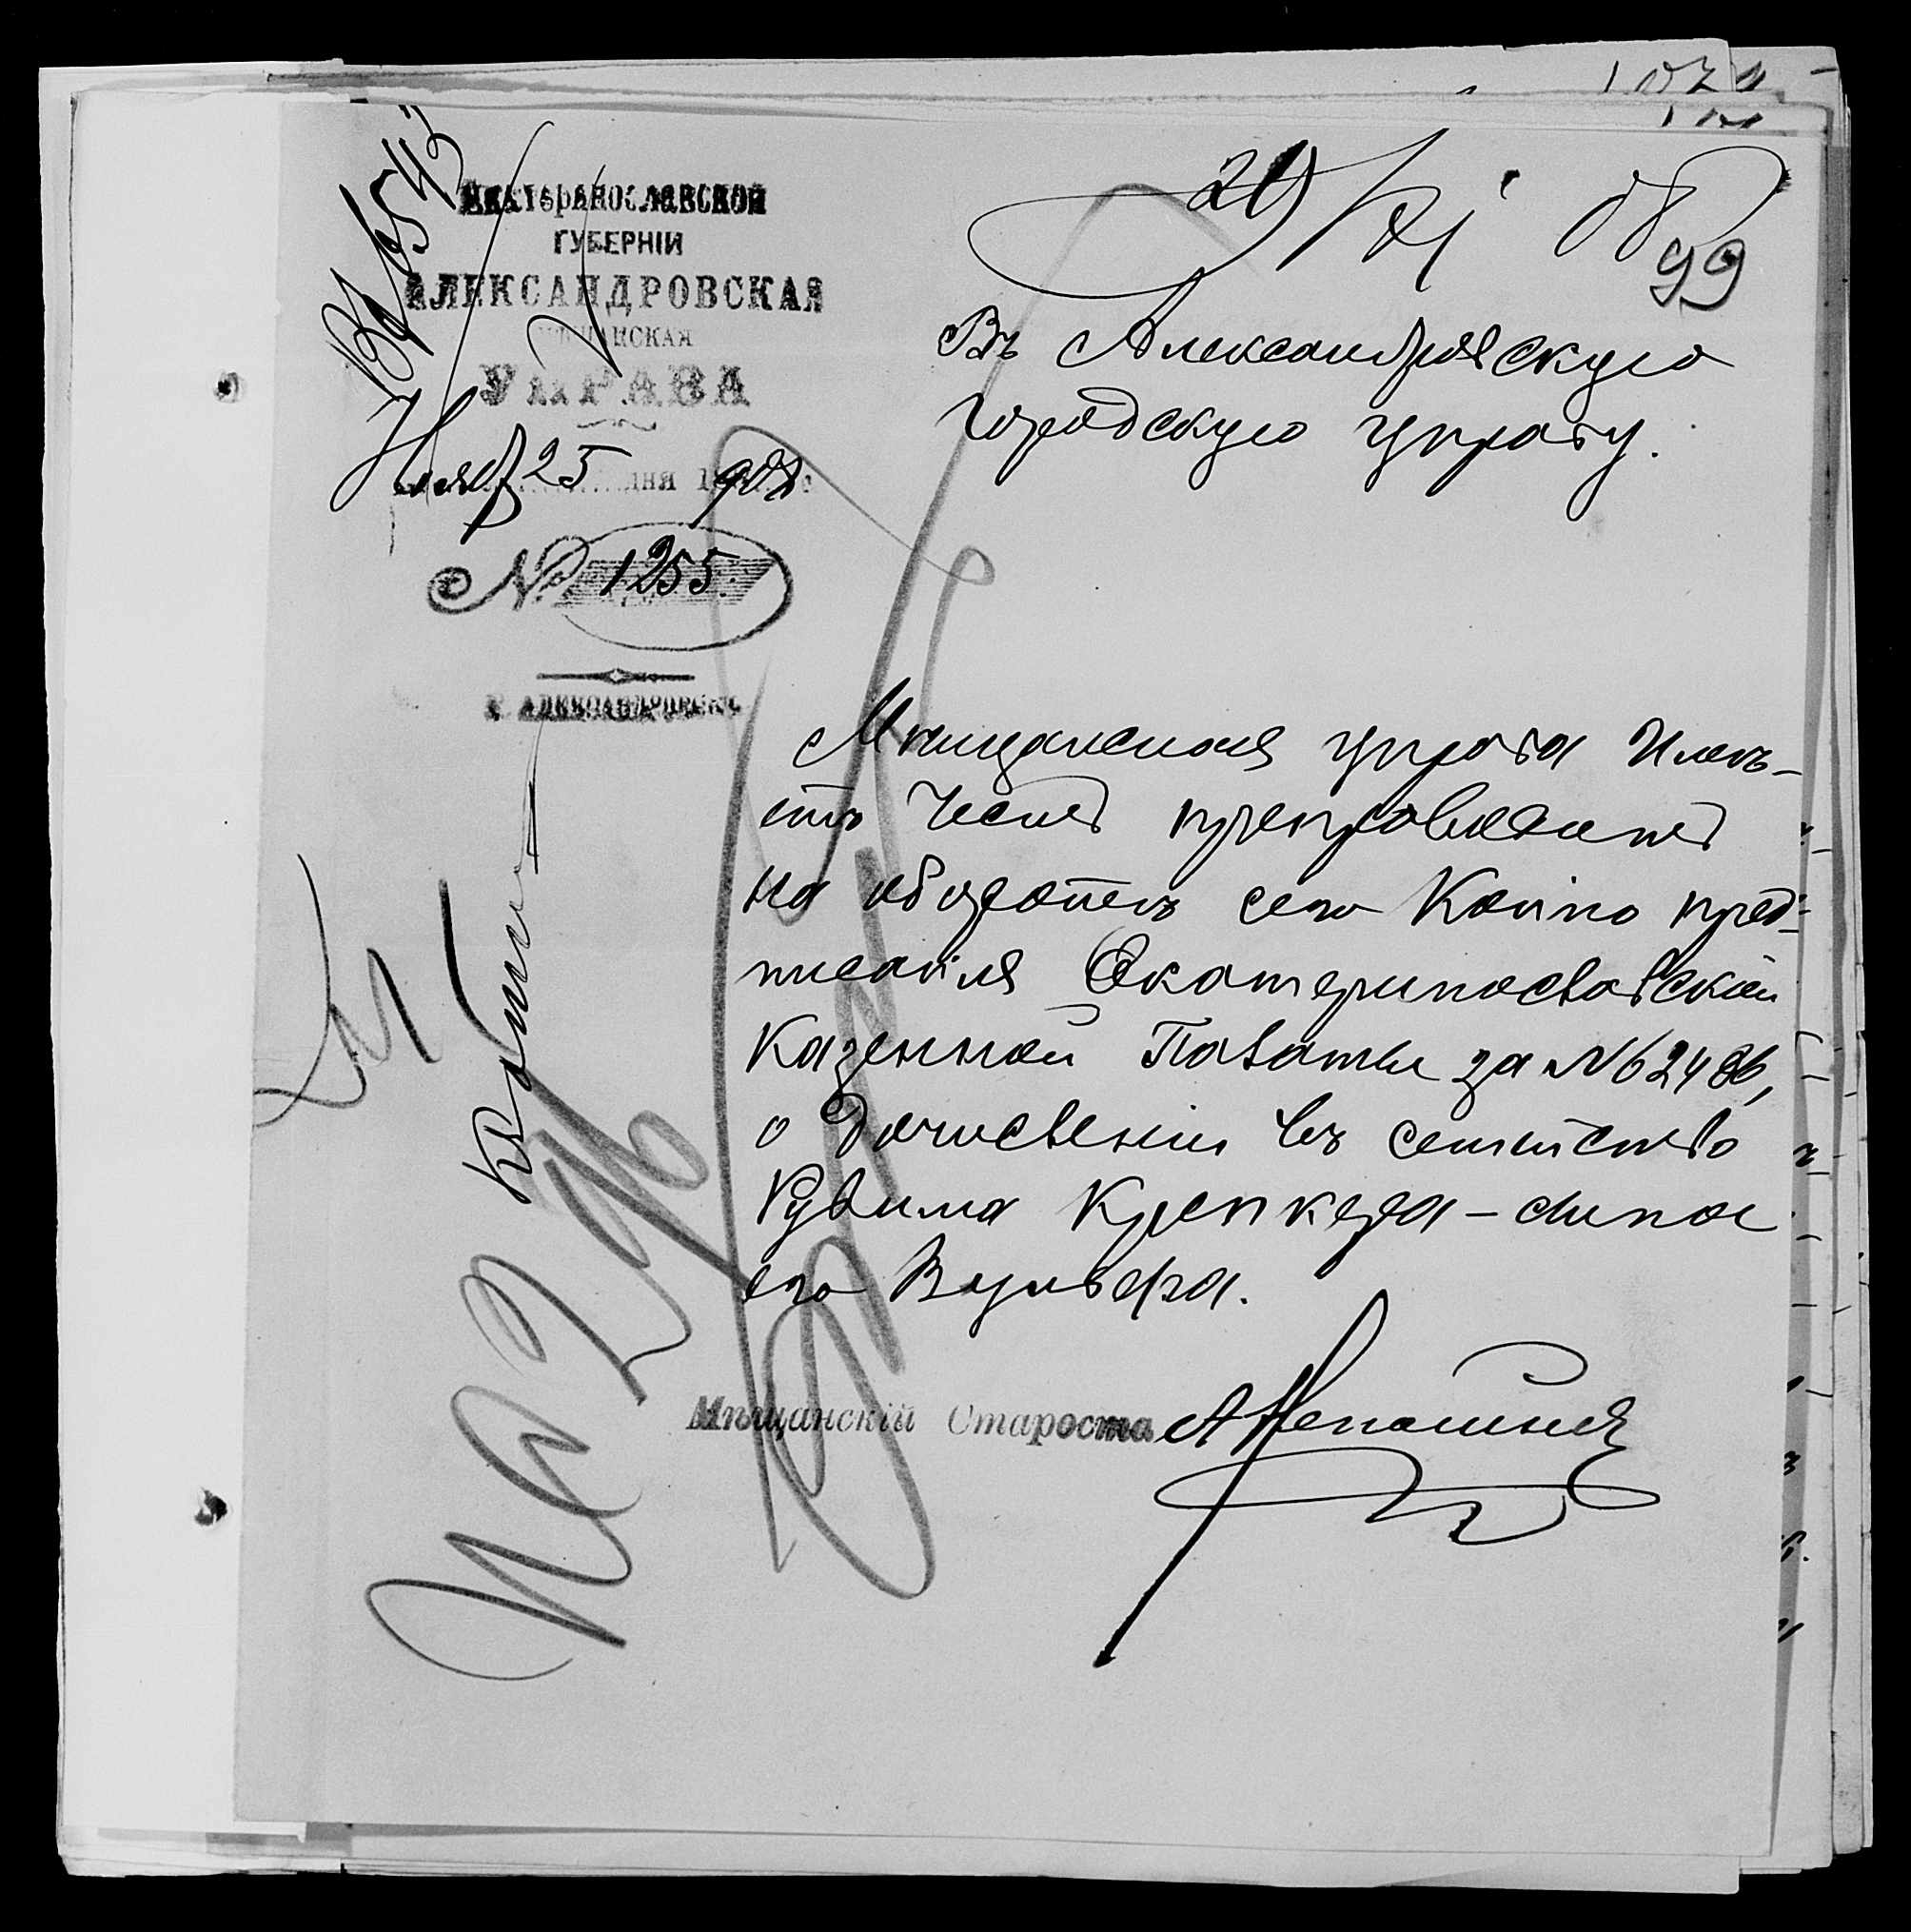 29/XI 08
99
ЕКАТЕРИНОСЛАВСКОЙ
ГУБЕРНІИ
АЛЕКСАНДРОВСКАЯ
МѢЩАНСКАЯ
УПРАВА
Нояб 25 дня 1908
№ 1255.
Г. АЛЕКСАНДРОВСКЪ
Въ Александровскую
городскую управу.
Мѣщанская управа имѣ-
етъ честь препроводить
на оборотѣ сего копію пред-
писанія Екатеринославской
Казенной Палаты за № 62486,
о дочисленіи въ семейство
Рувима Крепкера - сына
его Вульфа.
Мѣщанскій Староста